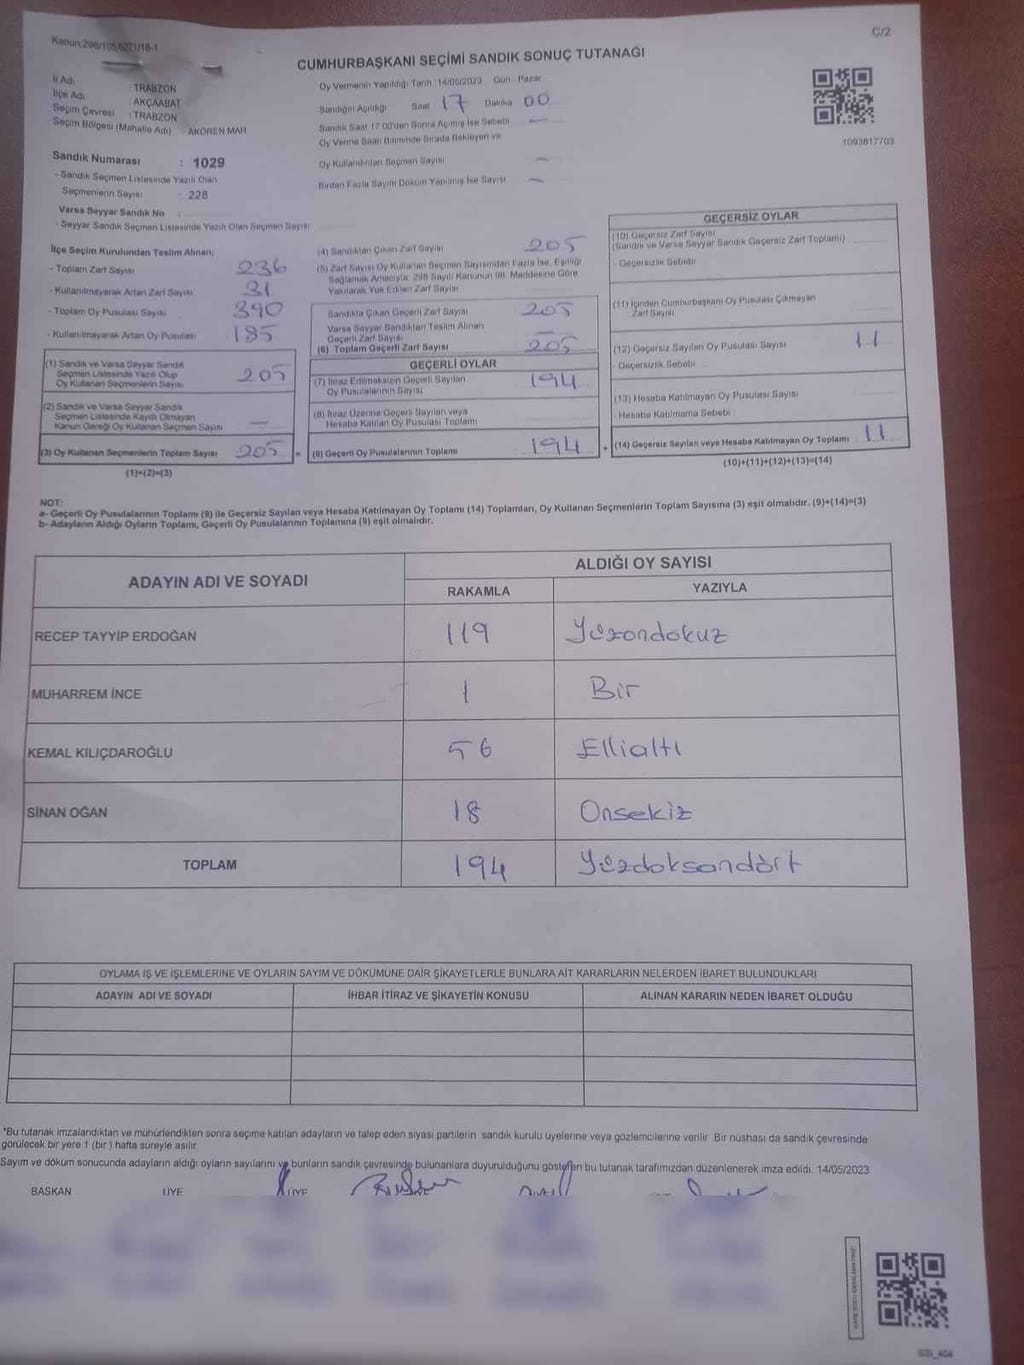 Kanun:298/105,6271/18-1
C/2
CUMHURBAŞKANI SEÇİMİ SANDIK SONUÇ TUTANAĞI
İl Adı : TRABZON
İlçe Adı : AKÇAABAT
Seçim Çevresi : TRABZON
Seçim Bölgesi (Mahalle Adı) : AKÖREN MAH
Sandık Numarası : 1029
- Sandık Seçmen Listesinde Yazılı Olan
Seçmenlerin Sayısı : 228
Varsa Seyyar Sandık No :
- Seyyar Sandık Seçmen Listesinde Yazılı Olan Seçmen Sayısı
Oy Vermenin Yapıldığı Tarih :14/05/2023 Gün : Pazar
Sandığın Açıldığı Saat 17 Dakika 00
Sandık Saat 17.00'den Sonra Açılmış İse Sebebi —
Oy Verme Saati Bitiminde Sırada Bekleyen ve
Oy Kullandırılan Seçmen Sayısı —
Birden Fazla Sayım Döküm Yapılmış İse Sayısı —
1093817703
İlçe Seçim Kurulundan Teslim Alınan;
- Toplam Zarf Sayısı 236
- Kullanılmayarak Artan Zarf Sayısı 31
- Toplam Oy Pusulası Sayısı 390
- Kullanılmayarak Artan Oy Pusulası 185
(1) Sandık ve Varsa Seyyar Sandık
Seçmen Listesinde Yazılı Olup
Oy Kullanan Seçmenlerin Sayısı 205
(2) Sandık ve Varsa Seyyar Sandık
Seçmen Listesinde Kayıtlı Olmayan
Kanun Gereği Oy Kullanan Seçmen Sayısı —
(3) Oy Kullanan Seçmenlerin Toplam Sayısı 205 =
(1)+(2)=(3)
(4) Sandıktan Çıkan Zarf Sayısı 205
(5) Zarf Sayısı Oy Kullanan Seçmen Sayısından Fazla İse, Eşitliği
Sağlamak Amacıyla, 298 Sayılı Kanunun 98. Maddesine Göre
Yakılarak Yok Edilen Zarf Sayısı
Sandıkta Çıkan Geçerli Zarf Sayısı 205
Varsa Seyyar Sandıktan Teslim Alınan
Geçerli Zarf Sayısı —
(6) Toplam Geçerli Zarf Sayısı 205
GEÇERLİ OYLAR
(7) İtiraz Edilmeksizin Geçerli Sayılan
Oy Pusulalarının Sayısı 194
(8) İtiraz Üzerine Geçerli Sayılan veya
Hesaba Katılan Oy Pusulası Toplamı
(9) Geçerli Oy Pusulalarının Toplamı 194 +
GEÇERSİZ OYLAR
(10) Geçersiz Zarf Sayısı
(Sandık ve Varsa Seyyar Sandık Geçersiz Zarf Toplamı)
- Geçersizlik Sebebi
(11) İçinden Cumhurbaşkanı Oy Pusulası Çıkmayan
Zarf Sayısı
(12) Geçersiz Sayılan Oy Pusulası Sayısı 11
- Geçersizlik Sebebi
(13) Hesaba Katılmayan Oy Pusulası Sayısı
- Hesaba Katılmama Sebebi
(14) Geçersiz Sayılan veya Hesaba Katılmayan Oy Toplamı 11
(10)+(11)+(12)+(13)=(14)
NOT:
a- Geçerli Oy Pusulalarının Toplamı (9) ile Geçersiz Sayılan veya Hesaba Katılmayan Oy Toplamı (14) Toplamları, Oy Kullanan Seçmenlerin Toplam Sayısına (3) eşit olmalıdır. (9)+(14)=(3)
b- Adayların Aldığı Oyların Toplamı, Geçerli Oy Pusulalarının Toplamına (9) eşit olmalıdır.
ADAYIN ADI VE SOYADI
ALDIĞI OY SAYISI
RAKAMLA YAZIYLA
RECEP TAYYİP ERDOĞAN 119 Yüzondokuz
MUHARREM İNCE 1 Bir
KEMAL KILIÇDAROĞLU 56 Ellialtı
SİNAN OĞAN 18 Onsekiz
TOPLAM 194 Yüzdoksandört
OYLAMA İŞ VE İŞLEMLERİNE VE OYLARIN SAYIM VE DÖKÜMÜNE DAİR ŞİKAYETLERLE BUNLARA AİT KARARLARIN NELERDEN İBARET BULUNDUKLARI
ADAYIN ADI VE SOYADI İHBAR İTİRAZ VE ŞİKAYETİN KONUSU ALINAN KARARIN NEDEN İBARET OLDUĞU
*Bu tutanak imzalandıktan ve mühürlendikten sonra seçime katılan adayların ve talep eden siyasi partilerin sandık kurulu üyelerine veya gözlemcilerine verilir. Bir nüshası da sandık çevresinde
görülecek bir yere 1 (bir) hafta süreyle asılır.
Sayım ve döküm sonucunda adayların aldığı oyların sayılarını ve bunların sandık çevresinde bulunanlara duyurulduğunu gösteren bu tutanak tarafımızdan düzenlenerek imza edildi. 14/05/2023
BAŞKAN ÜYE ÜYE